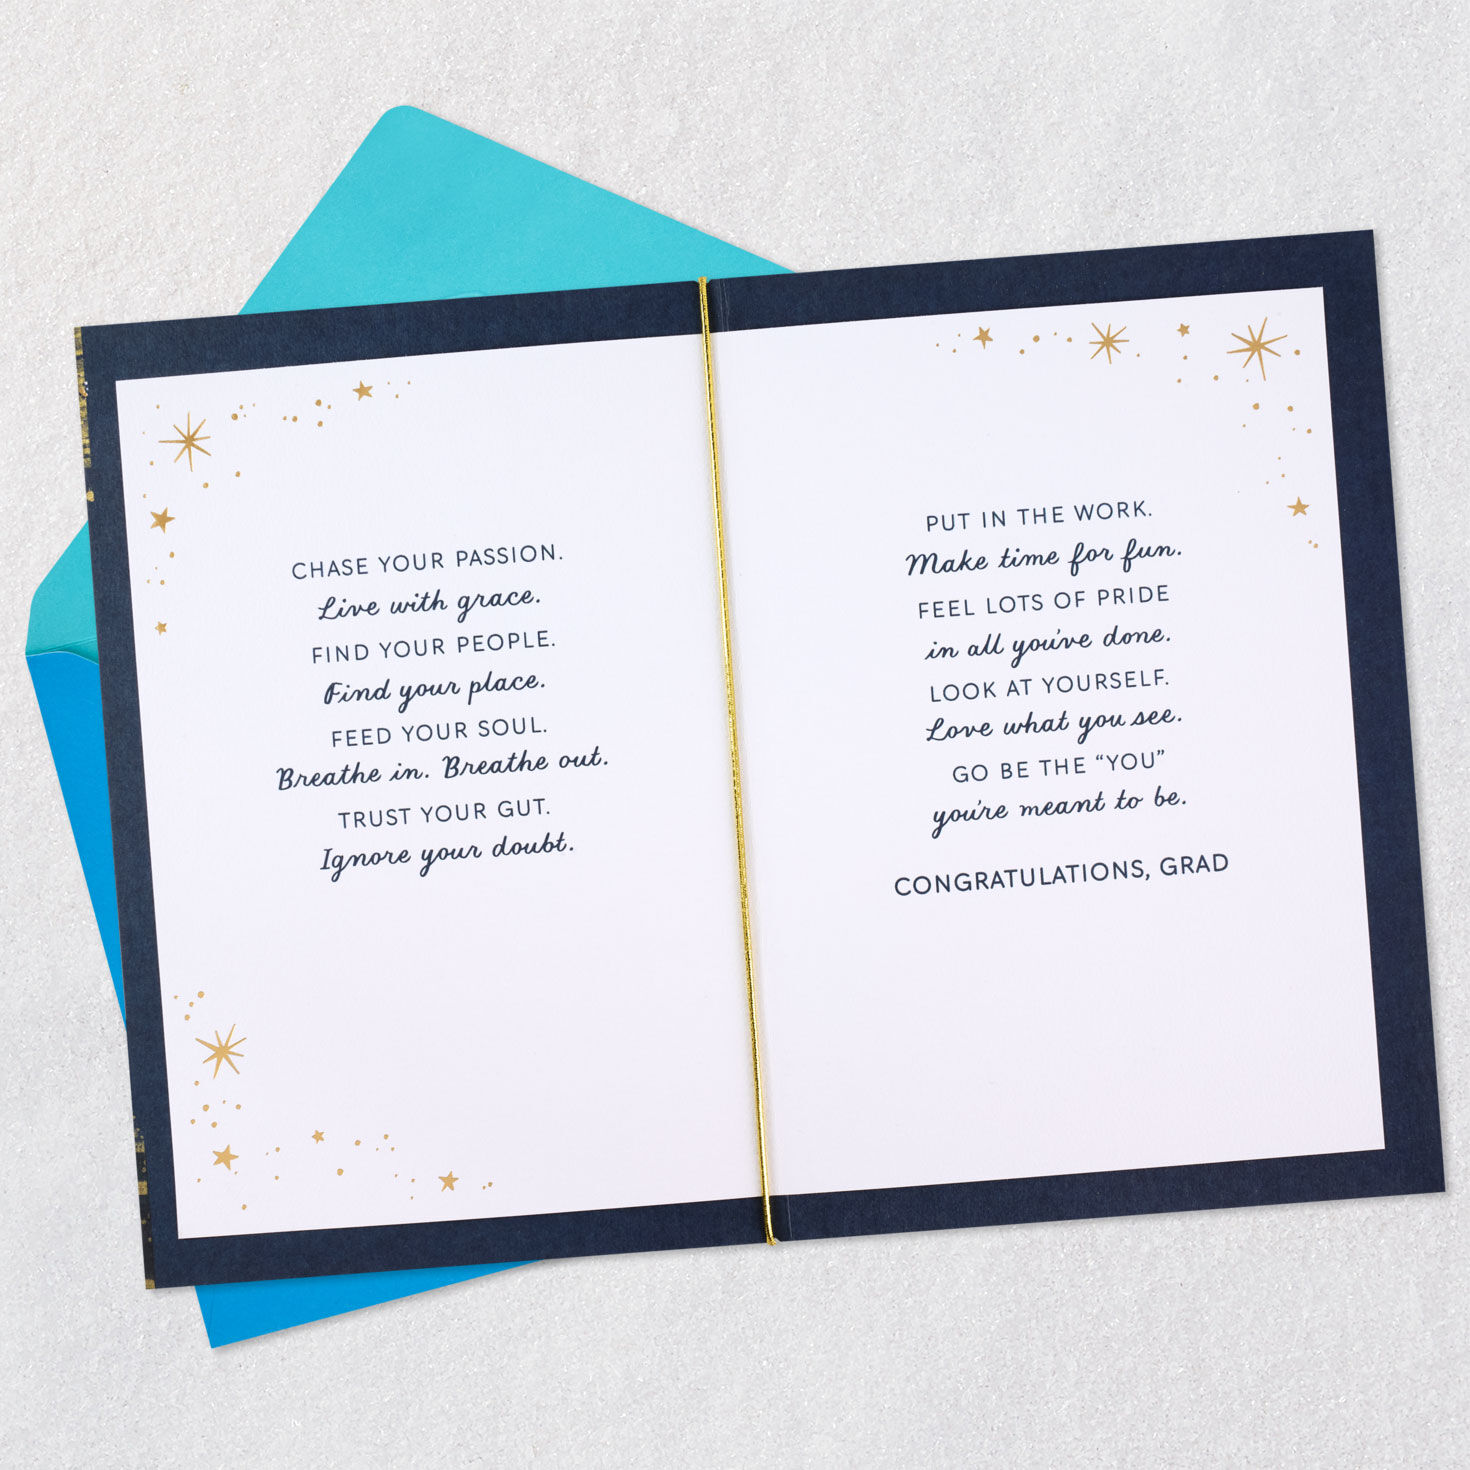 CHASE YOUR PASSION.
Live with grace.
FIND YOUR PEOPLE.
Find your place.
FEED YOUR SOUL.
Breathe in. Breathe out.
TRUST YOUR GUT.
Ignore your doubt.
PUT IN THE WORK.
Make time for fun.
FEEL LOTS OF PRIDE
in all you've done.
LOOK AT YOURSELF.
Love what you see.
GO BE THE “YOU”
you're meant to be.
CONGRATULATIONS, GRAD